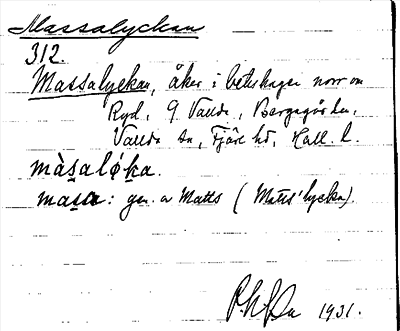 Massalyckan
312.
Massalyckan, åker i beteshagen norr om
Ryd, G. Valda, Bergagården,
Valda sn, Fjäre hd, Hall. l.
màsaløka.
masa: gen. av Matts (Matts' lycka).
1931.